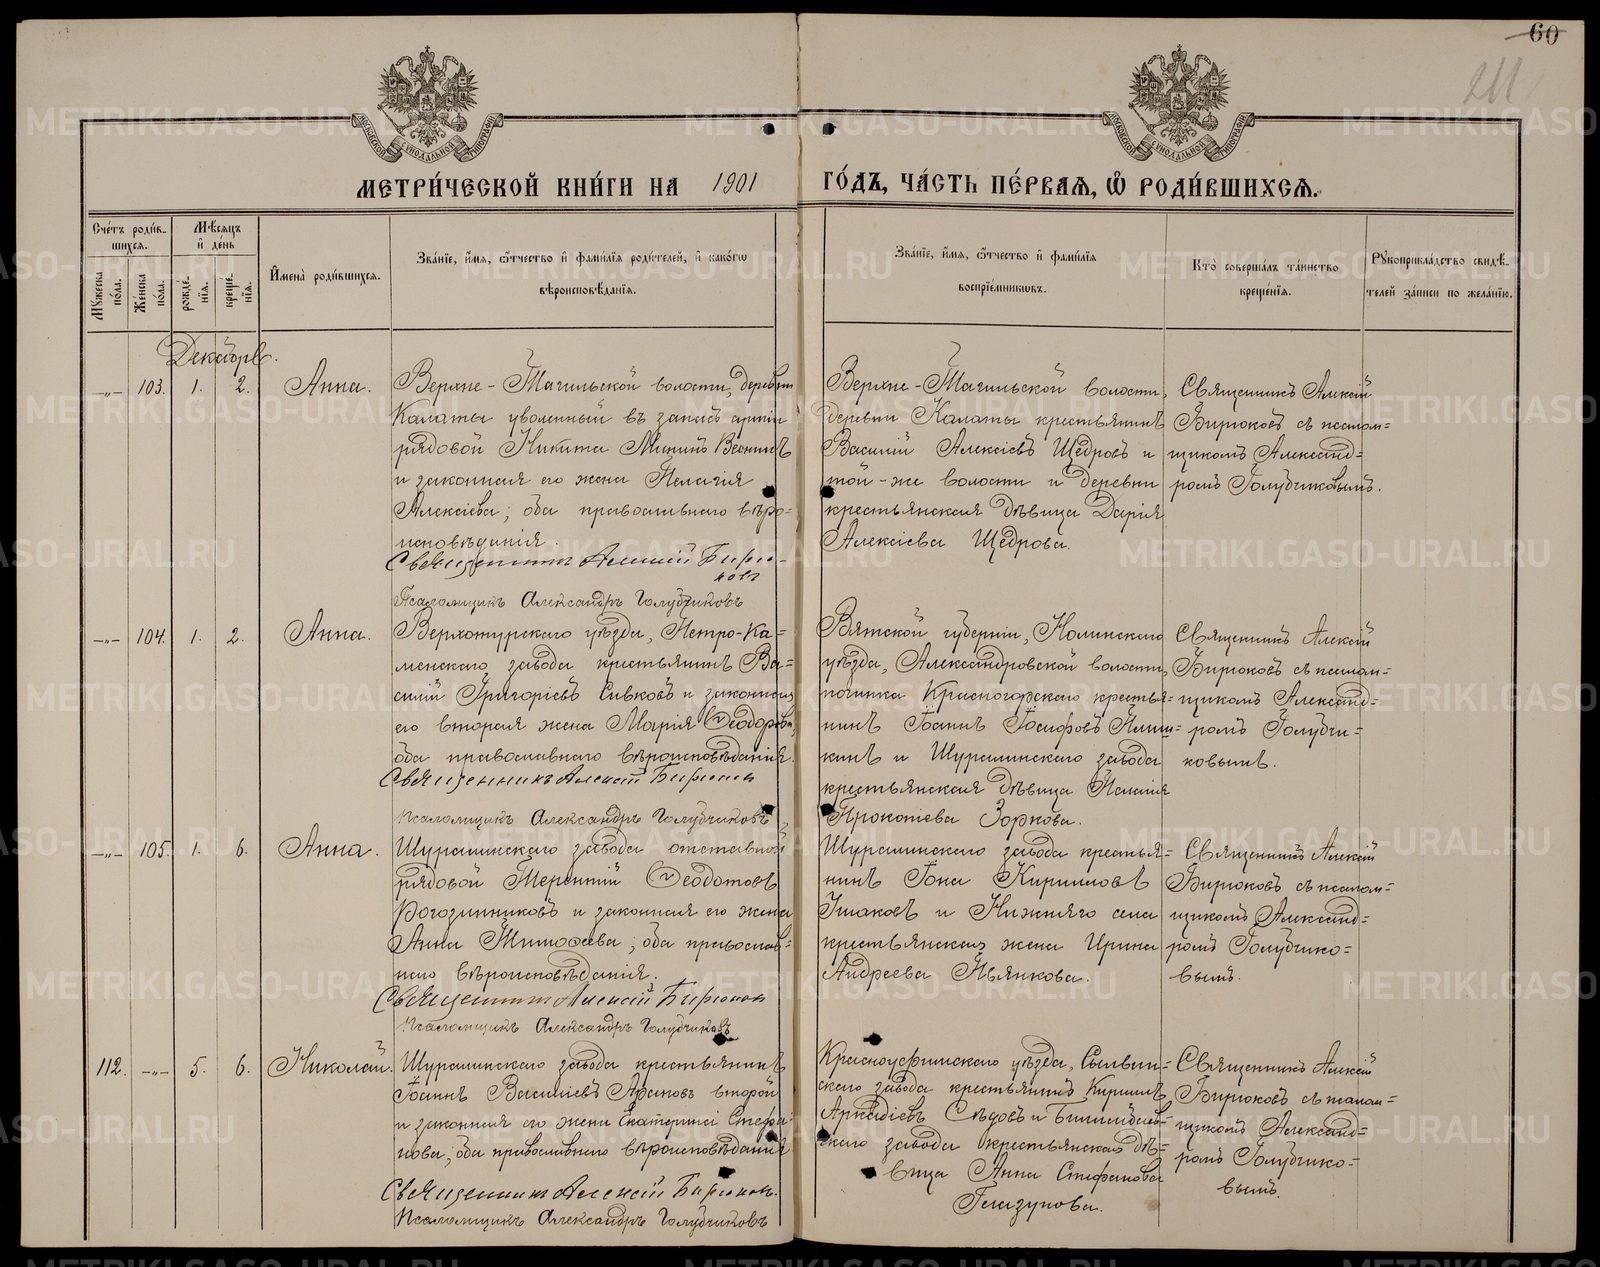 60
211
МЕТРИ́ЧЕСКОЙ КНИ́ГИ НА 1901 ГО́ДЪ, ЧА́СТЬ ПЕ́РВАѦ, Ѽ РОДИ́ВШИХСѦ.
Сче́тъ роди́вшихсѧ.
Мѣ́сѧцъ и҆ де́нь
И҆мена̀ роди́вшихсѧ.
Зва́нїе, и҆́мѧ, ѻ҆́тчество и҆ фами́лїѧ роди́телей, и҆ како́гѡ
вѣроисповѣ́данїѧ.
Зва́нїе, и҆́мѧ, ѻ҆́тчество и҆ фами́лїѧ
воспрїе́мникѡвъ.
Кто̀ соверша́лъ та́инство
креще́нїѧ.
Рꙋкоприкла́дство свидѣ́-
телей за́писи по жела́нїю.
Мꙋ́жеска по́ла.
Же́нска по́ла.
рожде́нїѧ.
креще́нїѧ.
Декабрь.
—„— 103. 1. 2. Анна.
Верхне-Тагильской волости, деревни
Калаты уволенный въ запасъ арміи
рядовой Никита Мининъ
и законная его жена Пелагія
Алексіева; оба православнаго вѣро-
исповѣданія.
Священникъ Алексій Бирю-
ковъ
Псаломщикъ Александръ Голубчиковъ
Верхне-Тагильской волости,
деревни Калаты крестьянинъ
Василій Алексіевъ Щедровъ и
той-же волости и деревни
крестьянская дѣвица Дарія
Алексіева Щедрова.
Священникъ Алексій
Бирюковъ съ псалом-
щикомъ Александ-
ромъ Голубчиковымъ.
—„— 104. 1. 2. Анна.
Верхотурскаго уѣзда, Петро-Ка-
менскаго завода крестьянинъ Ва-
силій Григоріевъ Сивковъ и законная
его вторая жена Марія Ѳеодорова,
оба православнаго вѣроисповѣданія.
Священникъ Алексій Бирюковъ
Псаломщикъ Александръ Голубчиковъ
Вятской губерніи, Нолинскаго
уѣзда, Александровской волости,
починка Красногорскаго крестья-
нинъ Іоаннъ Іосифовъ
кинъ и Шуралинскаго завода
крестьянская дѣвица Пелагія
Прокопіева Зоркова.
Священникъ Алексій
Бирюковъ съ псалом-
щикомъ Александ-
ромъ Голубчи-
ковымъ.
—„— 105. 1. 6. Анна.
Шуралинскаго завода отставной
рядовой Терентій Ѳеодотовъ
Рогозинниковъ и законная его жена
Анна Тимоѳеева; оба православ-
наго вѣроисповѣданія.
Священникъ Алексій Бирюковъ
Псаломщикъ Александръ Голубчиковъ
Шуралинскаго завода крестья-
нинъ Іона Кирилловъ
Ушаковъ и Нижняго села
крестьянская жена Ирина
Андреева Пьянкова.
Священникъ Алексій
Бирюковъ съ псалом-
щикомъ Александ-
ромъ Голубчико-
вымъ.
112. —„— 5. 6. Николай.
Шуралинскаго завода крестьянинъ
Іоаннъ Василіевъ второй
и законная его жена Екатерина Стефа-
нова, оба православнаго вѣроисповѣданія
Священникъ Алексій Бирюковъ.
Псаломщикъ Александръ Голубчиковъ
Красноуфимскаго уѣзда, Сылвин-
скаго завода крестьянинъ Кириллъ
Аркадіевъ Сѣдовъ и Билимбаев-
скаго завода крестьянская дѣ-
вица Анна Стефанова
Глазунова.
Священникъ Алексій
Бирюковъ съ псалом-
щикомъ Александ-
ромъ Голубчико-
вымъ.
METRIKI.GASO-URAL.RU